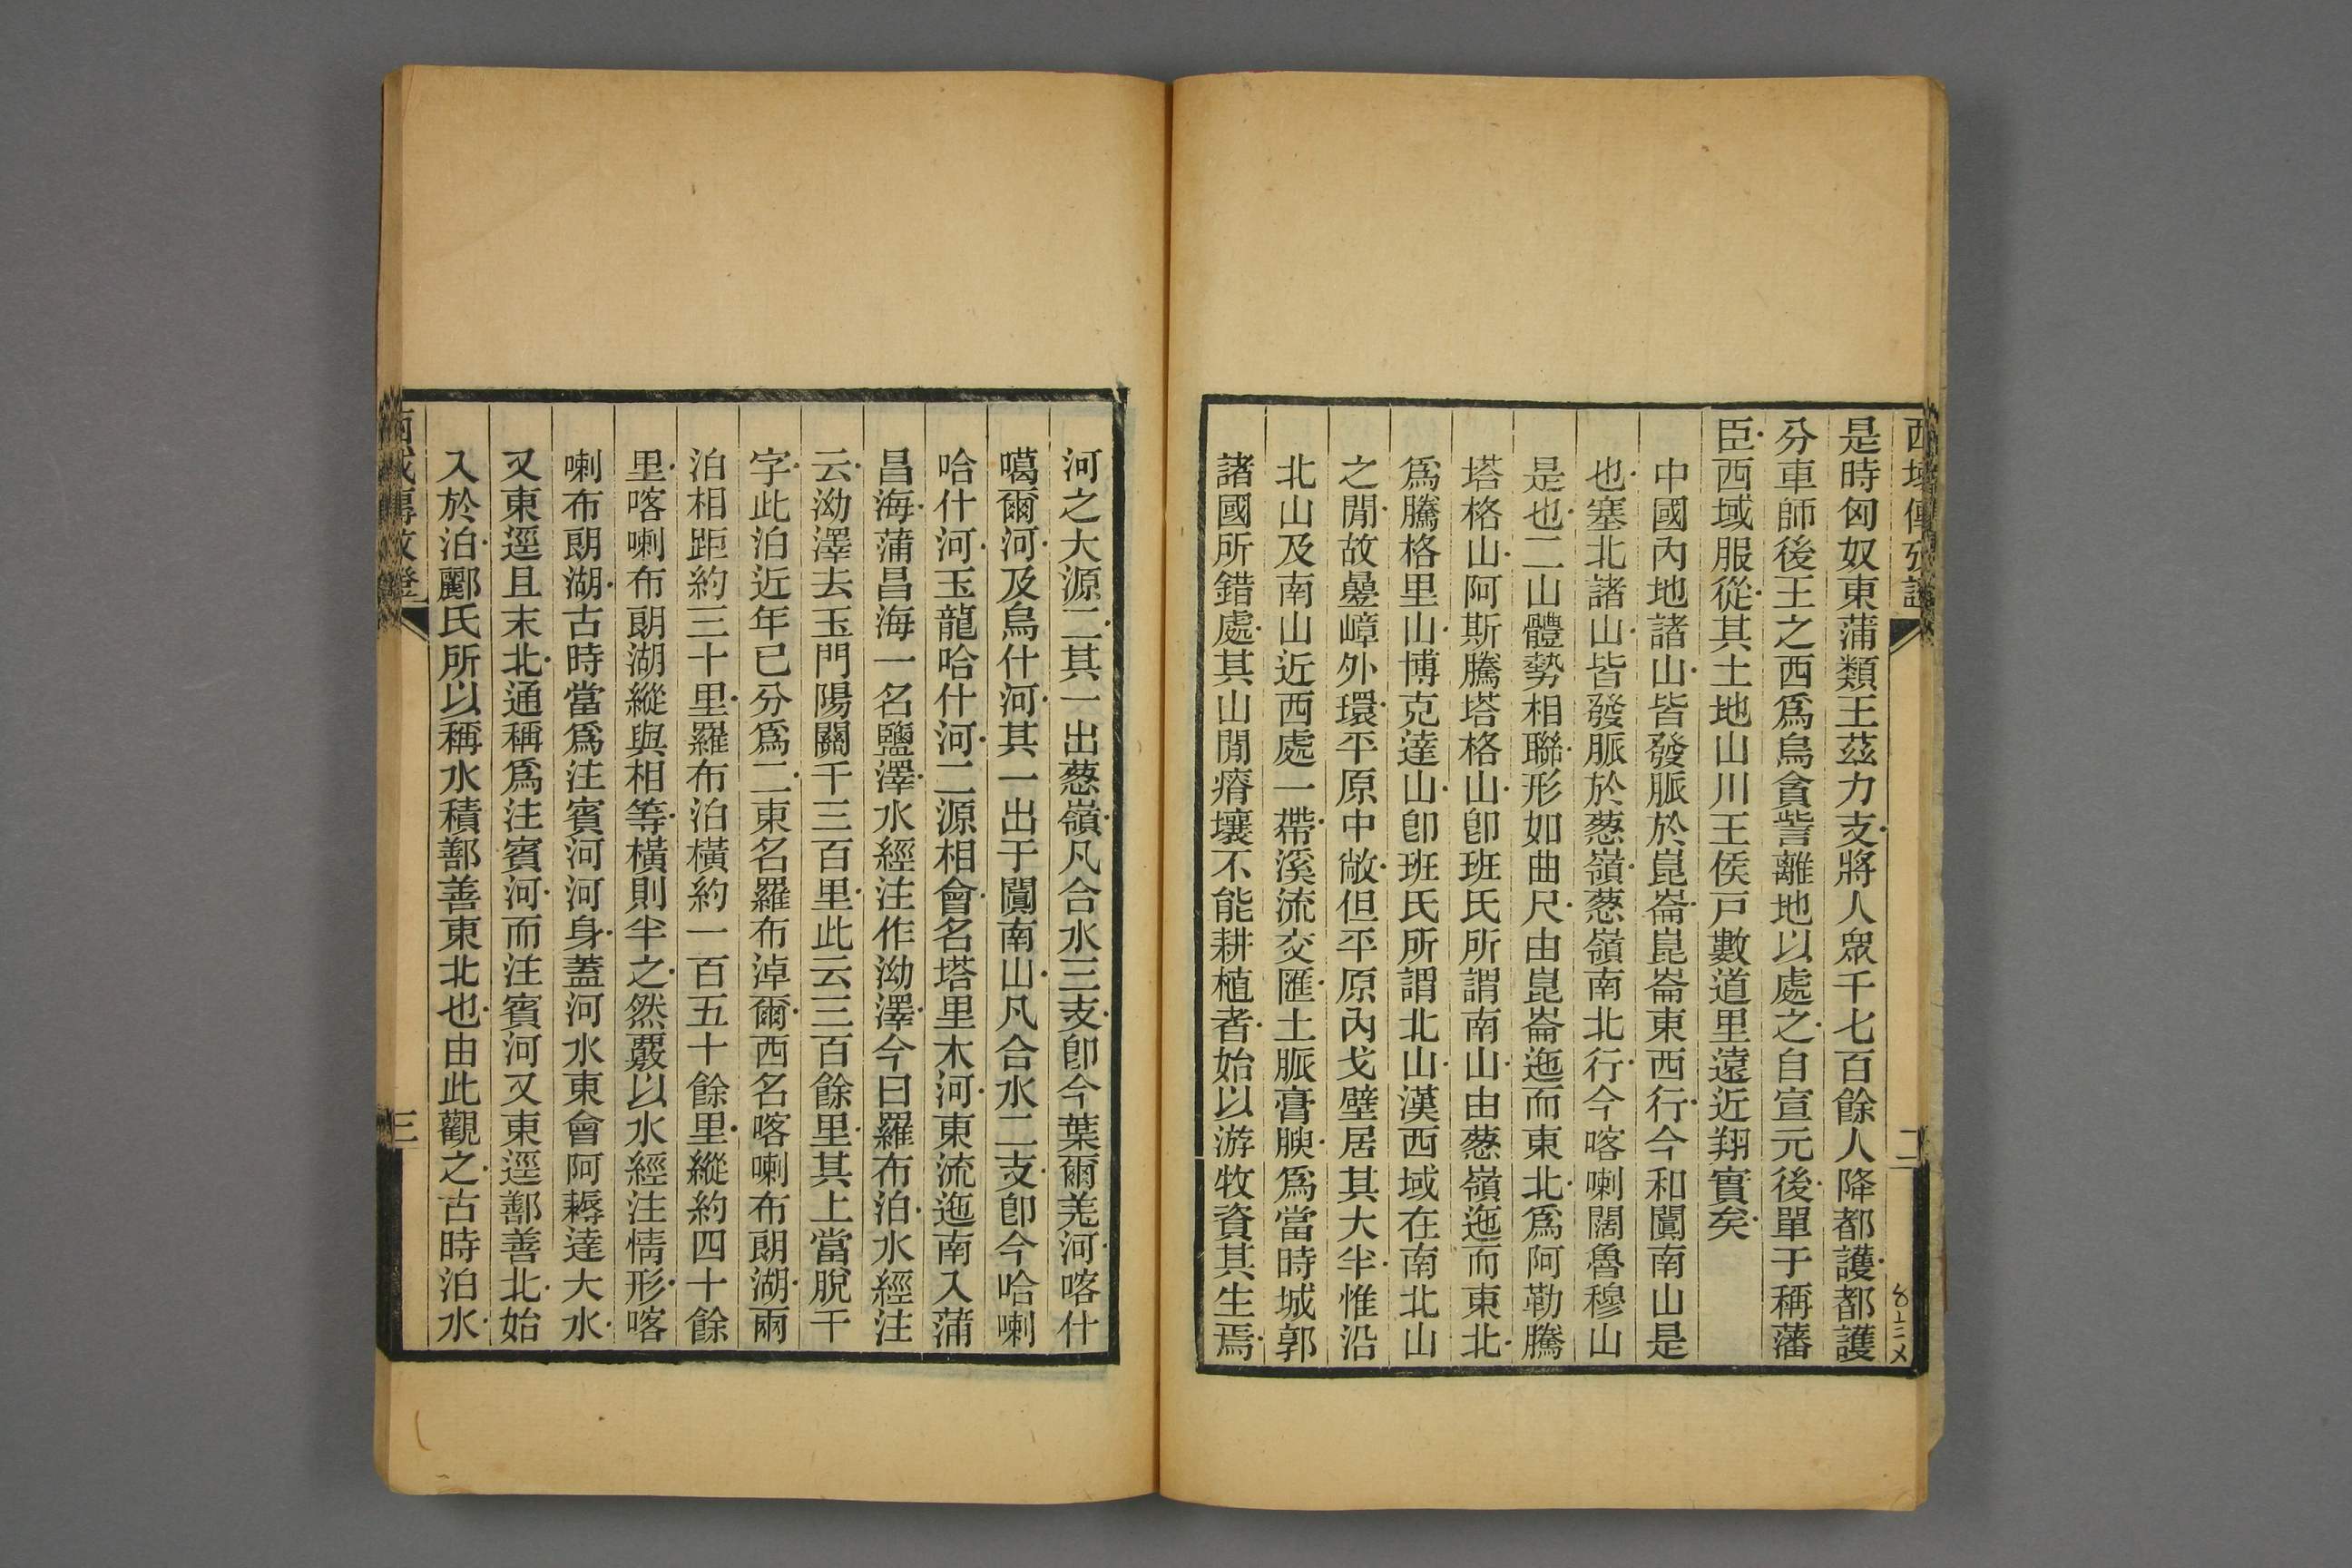 西域傳攷證
二
是時匈奴東蒲類王茲力支將人眾千七百餘人降都護都護
分車師後王之西為烏貪訾離地以處之自宣元後單于稱藩
臣西域服從其土地山川王侯戶數道里遠近翔實矣
中國內地諸山皆發脈於崑崙崑崙東西行今和闐南山是
也塞北諸山皆發脈於葱嶺葱嶺南北行今喀喇闊魯穆山
是也二山體勢相聯形如曲尺由崑崙迤而東北為阿勒騰
塔格山阿斯騰塔格山卽班氏所謂南山由葱嶺迤而東北
為騰格里山博克達山卽班氏所謂北山漢西域在南北山
之閒故疊嶂外環平原中敞但平原內戈壁居其大半惟沿
北山及南山近西處一帶溪流交匯土脈膏腴為當時城郭
諸國所錯處其山閒瘠壤不能耕植者始以游牧資其生焉
河之大源二其一出葱嶺凡合水三支卽今葉爾羌河喀什
噶爾河及烏什河其一出于闐南山凡合水二支卽今哈喇
哈什河玉龍哈什河二源相會名塔里木河東流迤南入蒲
昌海蒲昌海一名鹽澤水經注作泑澤今曰羅布泊水經注
云泑澤去玉門陽關千三百里此云三百餘里其上當脫千
字此泊近年已分為二東名羅布淖爾西名喀喇布朗湖兩
泊相距約三十里羅布泊橫約一百五十餘里縱約四十餘
里喀喇布朗湖縱與相等橫則半之然覈以水經注情形喀
喇布朗湖古時當為注賓河河身蓋河水東會阿耨達大水
又東逕且末北通稱為注賓河而注賓河又東逕鄯善北始
入於泊酈氏所以稱水積鄯善東北也由此觀之古時泊水
西域傳攷證
三